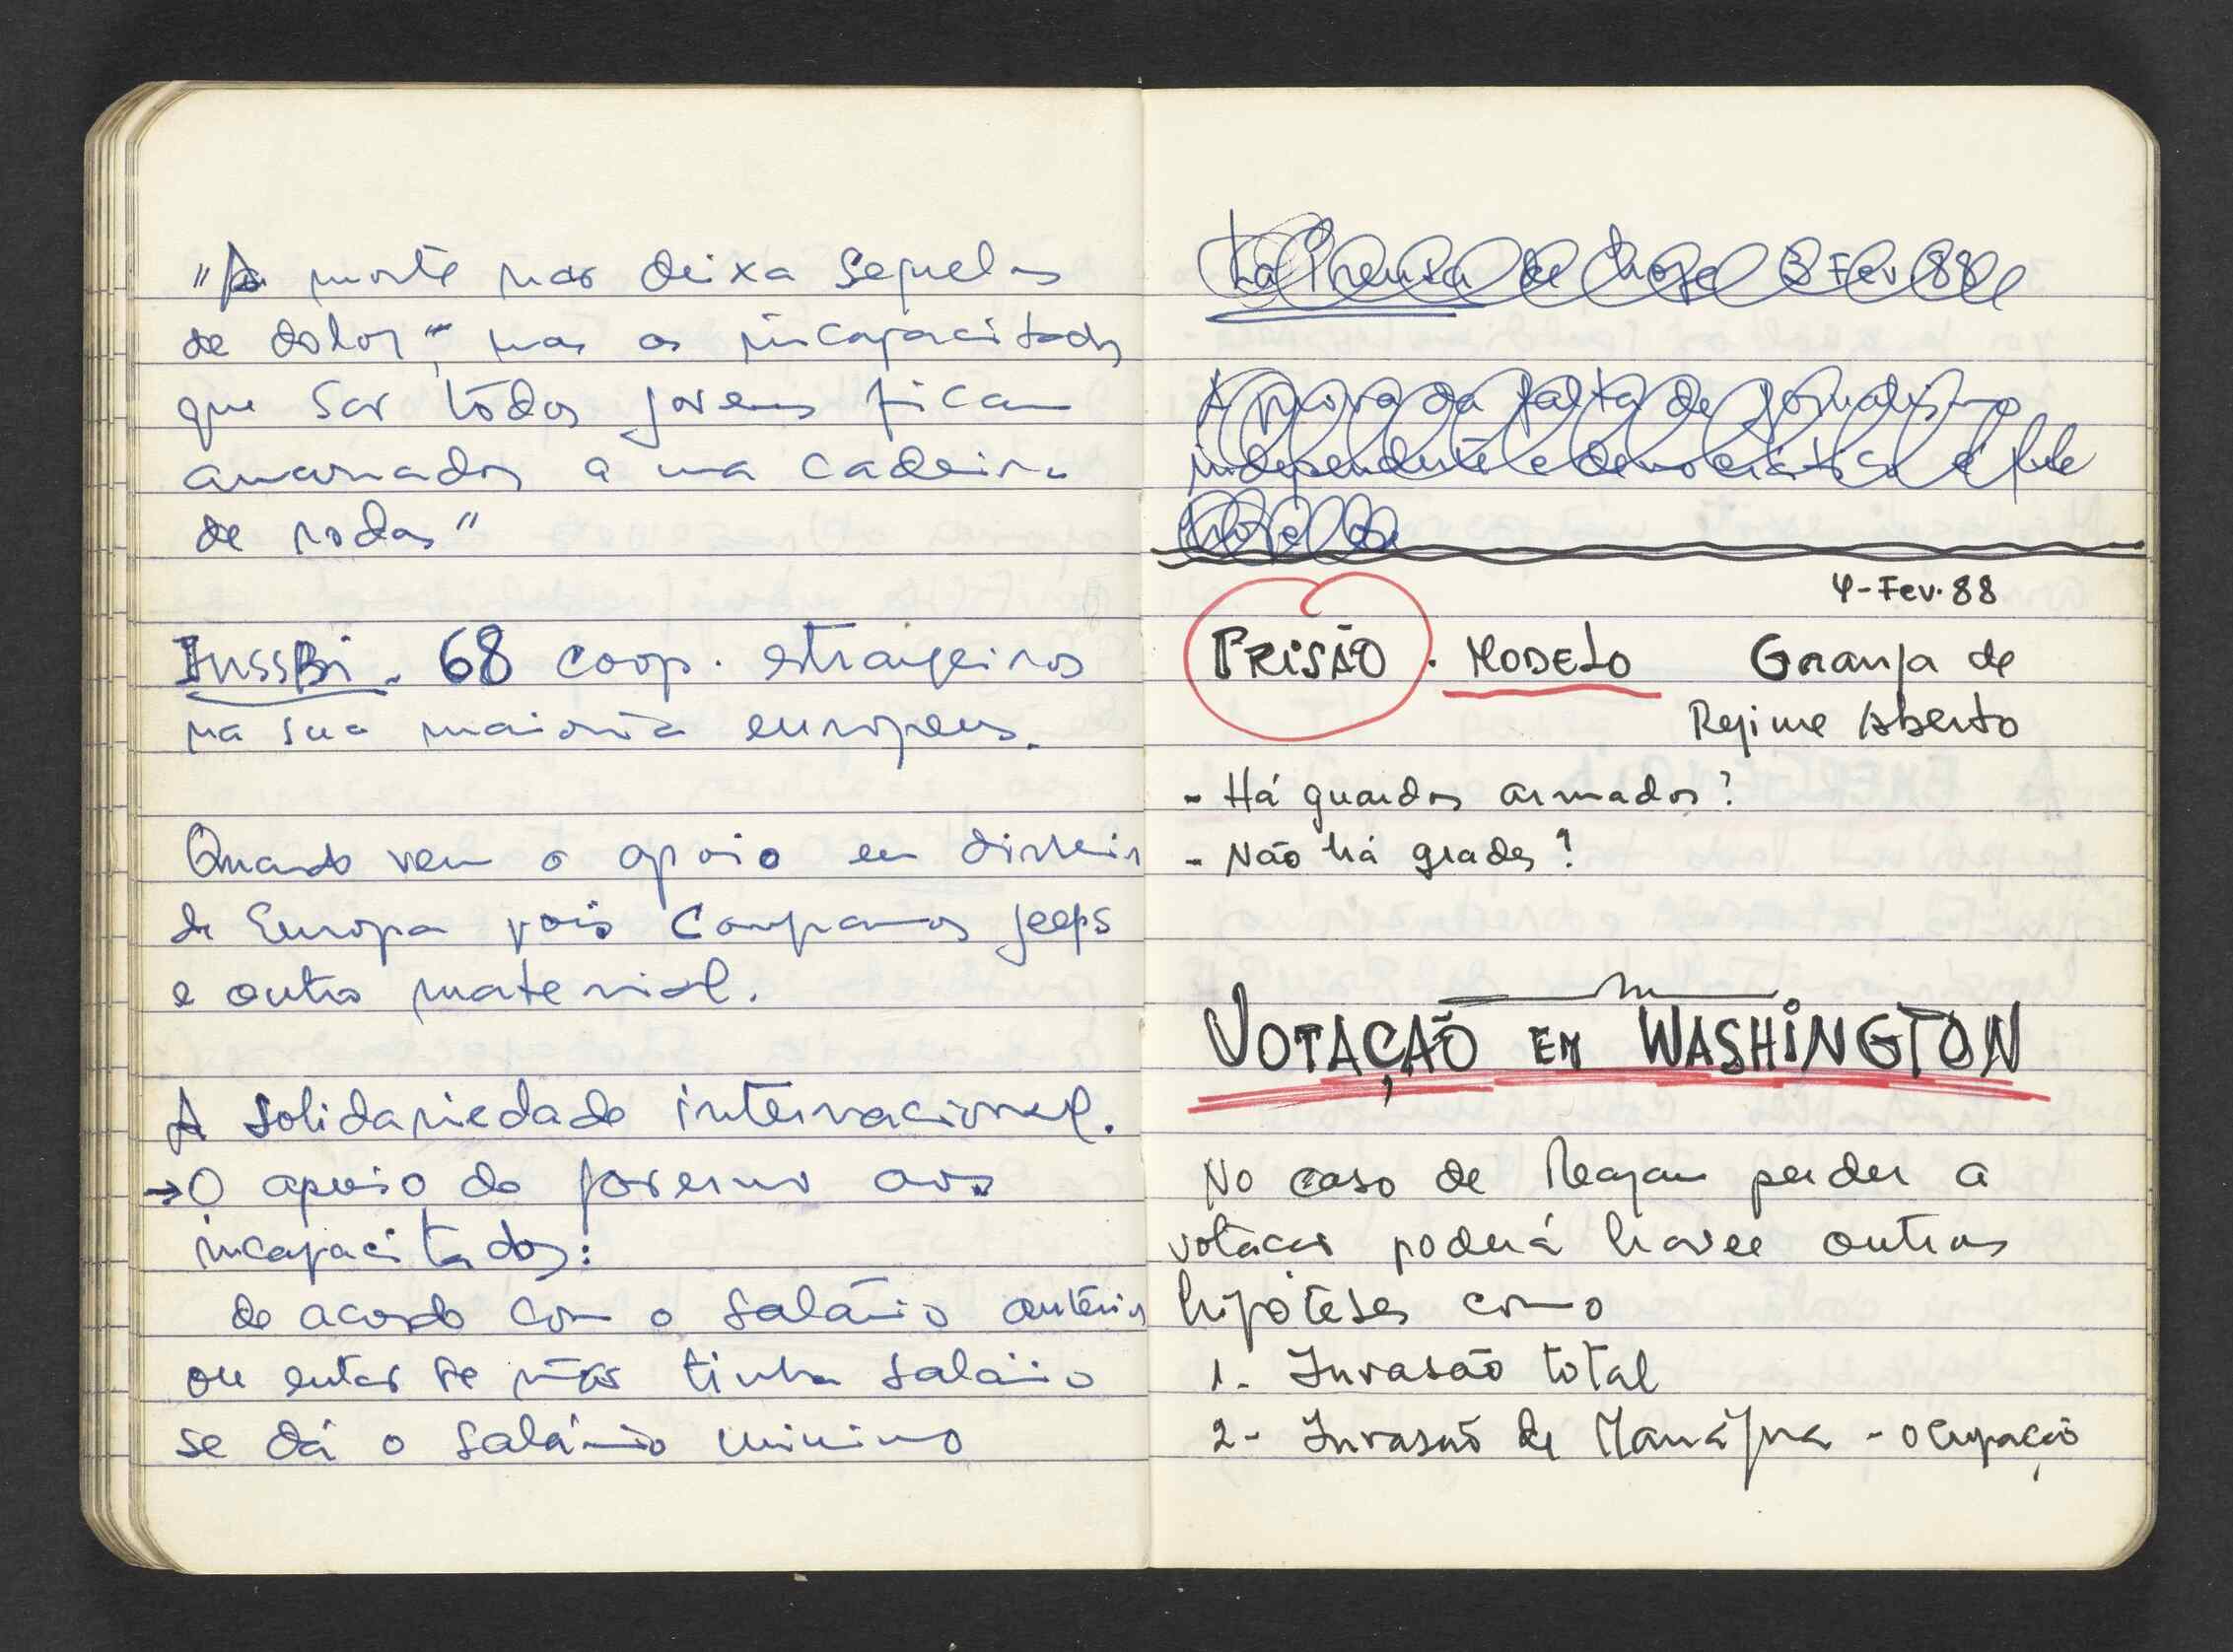 "A morte nao deixa sequelas
de dolor", mas os incapacitados
que sao todos jovens ficam
amarrados a uma cadeira
de rodas"
InssBi - 68 coop. estrangeiros
na sua maioria europeus.
Quando vem o apoio em dinheiro
da Europa pois compramos jeeps
e outro material.
A solidariedade internacional.
→ O apoio do governo aos
incapacitados:
de acordo com o salário anterior
ou entao se não tinha salário
se dá o salário minimo
La Prensa de hoje 3 Fev. 88
A prova da falta de jornalismo
independente e democrático é que
hoje
4-Fev.88
PRISÃO. MODELO Granja de
Regime Aberto
- Há guardas armados?
- Não há grades?
VOTAÇÃO EM WASHINGTON
No caso de Reagan perder a
votacao poderá haver outras
hipóteses como
1- Invasão total
2- Invasão de Manágua - ocupação